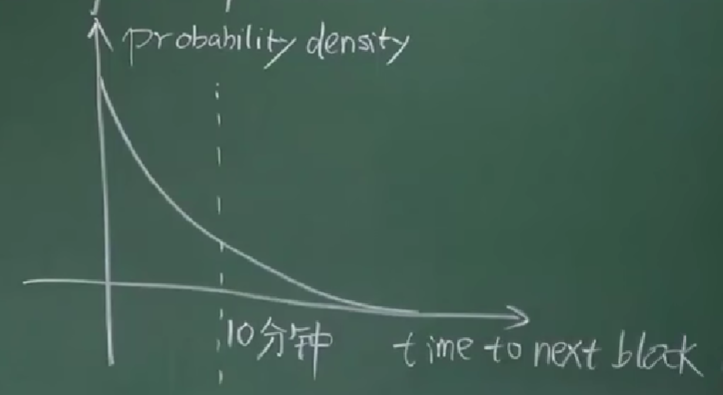 probability density
10分钟
time to next block